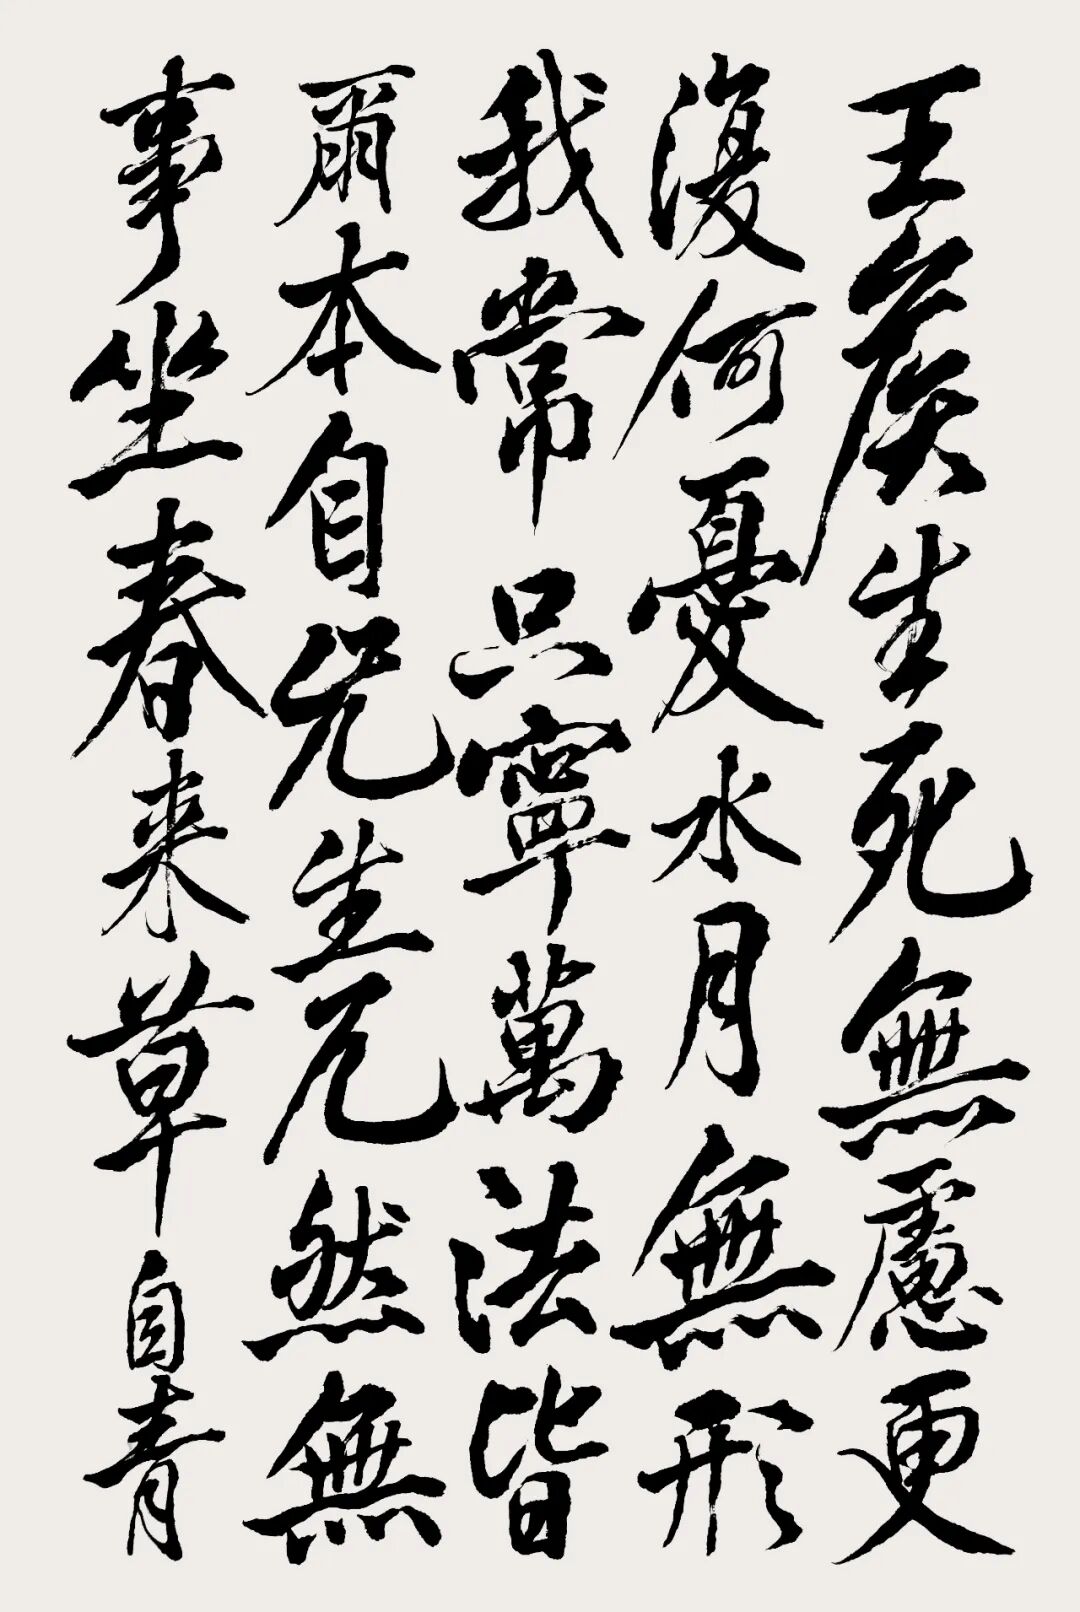 王矦生死無慮更
復何憂水月無形
我常只寧萬法皆
爾本自无生兀然無
事坐春来草自青